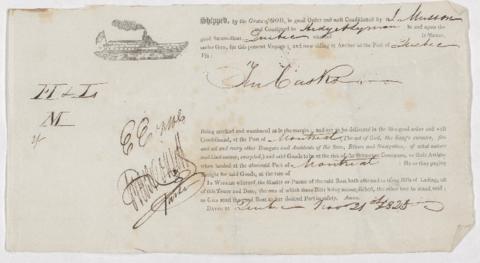 Shipped, by the Grace of GOD, in good Order and well Conditioned by J. Musson
and Consigned to in and upon the
good Steam-Boat Quebec whereof is Master,
under God, for this present Voyage, and now riding at Anchor at the Port of Quebec
Viz:
Ten Casks
H & L
M
Being marked and numbered as in the margin, and are to be delivered in the like good order and well
Conditioned, at the Port of Montreal, The act of God, the King's enemies, fire
and all and every other Dangers and Accidents of the Seas, Rivers and Navigation, of what nature
and kind soever, excepted,) and said Goods to be at the risk of the Company, or their Assigns
when landed at the aforesaid Port of Montreal He or they paying
Freight for said Goods, at the rate of
In Witness whereof, the Master or Purser of the said Boat hath affirmed to Bills of Lading, all
of this Tenor and Date, the one of which Bills being accomplished, the other to stand void;
so God send the good Boat to her desired Port in safety. Amen.
Dated at Quebec Nov 21st 1825